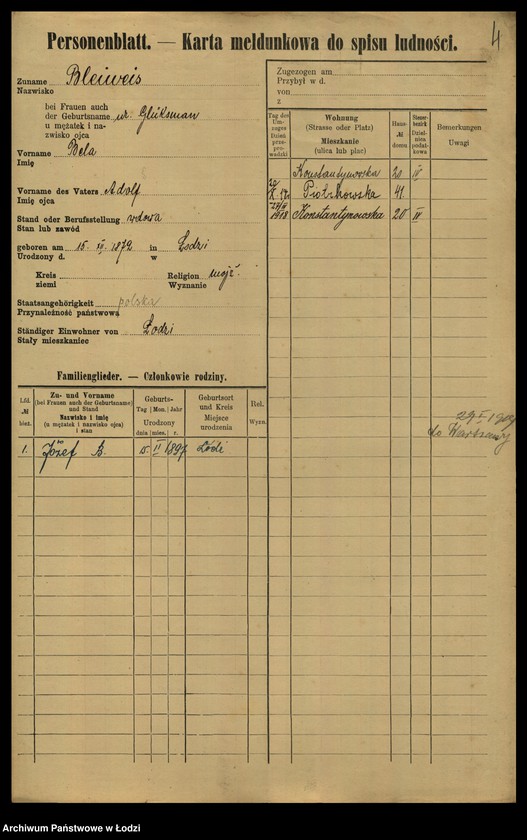 4
Personenblatt. — Karta meldunkowa do spisu ludności.
Zuname Bleiweis
Nazwisko
bei Frauen auch
der Geburtsname ur. Glüksman
u mężatek i na-
zwisko ojca
Vorname Bela
Imię
Vorname des Vaters Adolf
Imię ojca
Stand oder Berufsstellung wdowa
Stan lub zawód
geboren am 15. III. 1872 in Łodzi
Urodzony d. w
Kreis Religion mojż.
ziemi Wyznanie
Staatsangehörigkeit polska
Przynależność państwowa
Ständiger Einwohner von Łodzi
Stały mieszkaniec
Zugezogen am
Przybył w d.
von
z
Tag des Um-zuges Dzień prze-prowadzki
Wohnung
(Strasse oder Platz)
Mieszkanie
(ulica lub plac)
Haus-
№
domu
Steuer-bezirk Dziel-nica podat-kowa
Bemerkungen
Uwagi
Konstantynowska 20 IV
Piotrkowska 41
1918 Konstantynowska 20 IV
do Warszawy
Familienglieder. — Członkowie rodziny.
Lfd.
№
bież.
Zu- und Vorname
(bei Frauen auch der Geburtsname)
und Stand
Nazwisko i imię
(u mężatek i nazwisko ojca)
i stan
Geburts-
Tag Mon. Jahr
Urodzony
dnia mies. r.
Geburtsort
und Kreis
Miejsce
urodzenia
Rel.
Wyzn.
1. Józef B. 15 II 1897 Łódź
Archiwum Państwowe w Łodzi